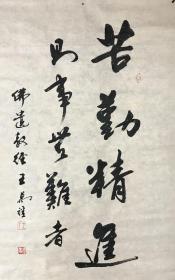 苦勤精進
則事無難者
佛遺教經 王